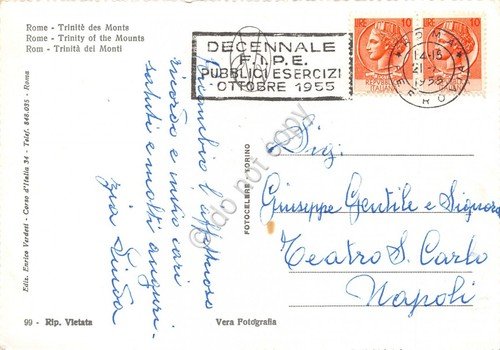 Rome - Trinité des Monts
Rome - Trinity of the Mounts
Rom - Trinità dei Monti
DECENNALE
F.I.P.E.
PUBBLICI ESERCIZI
OTTOBRE 1955
ROMA
14-15
1955
FERROVIA
LIRE 10
10
ITALIANE
Ediz. Enrico Verdesi - Corso d'Italia 34 - Telef. 848.035 - Roma
Contraccambio l'affettuoso
ricordo e invio cari
saluti e molti auguri.
zia
FOTOCELERE - TORINO
Sig.
Giuseppe Gentile e Signora
Teatro S. Carlo
Napoli
99 - Rip. Vietata
Vera Fotografia
do not copy